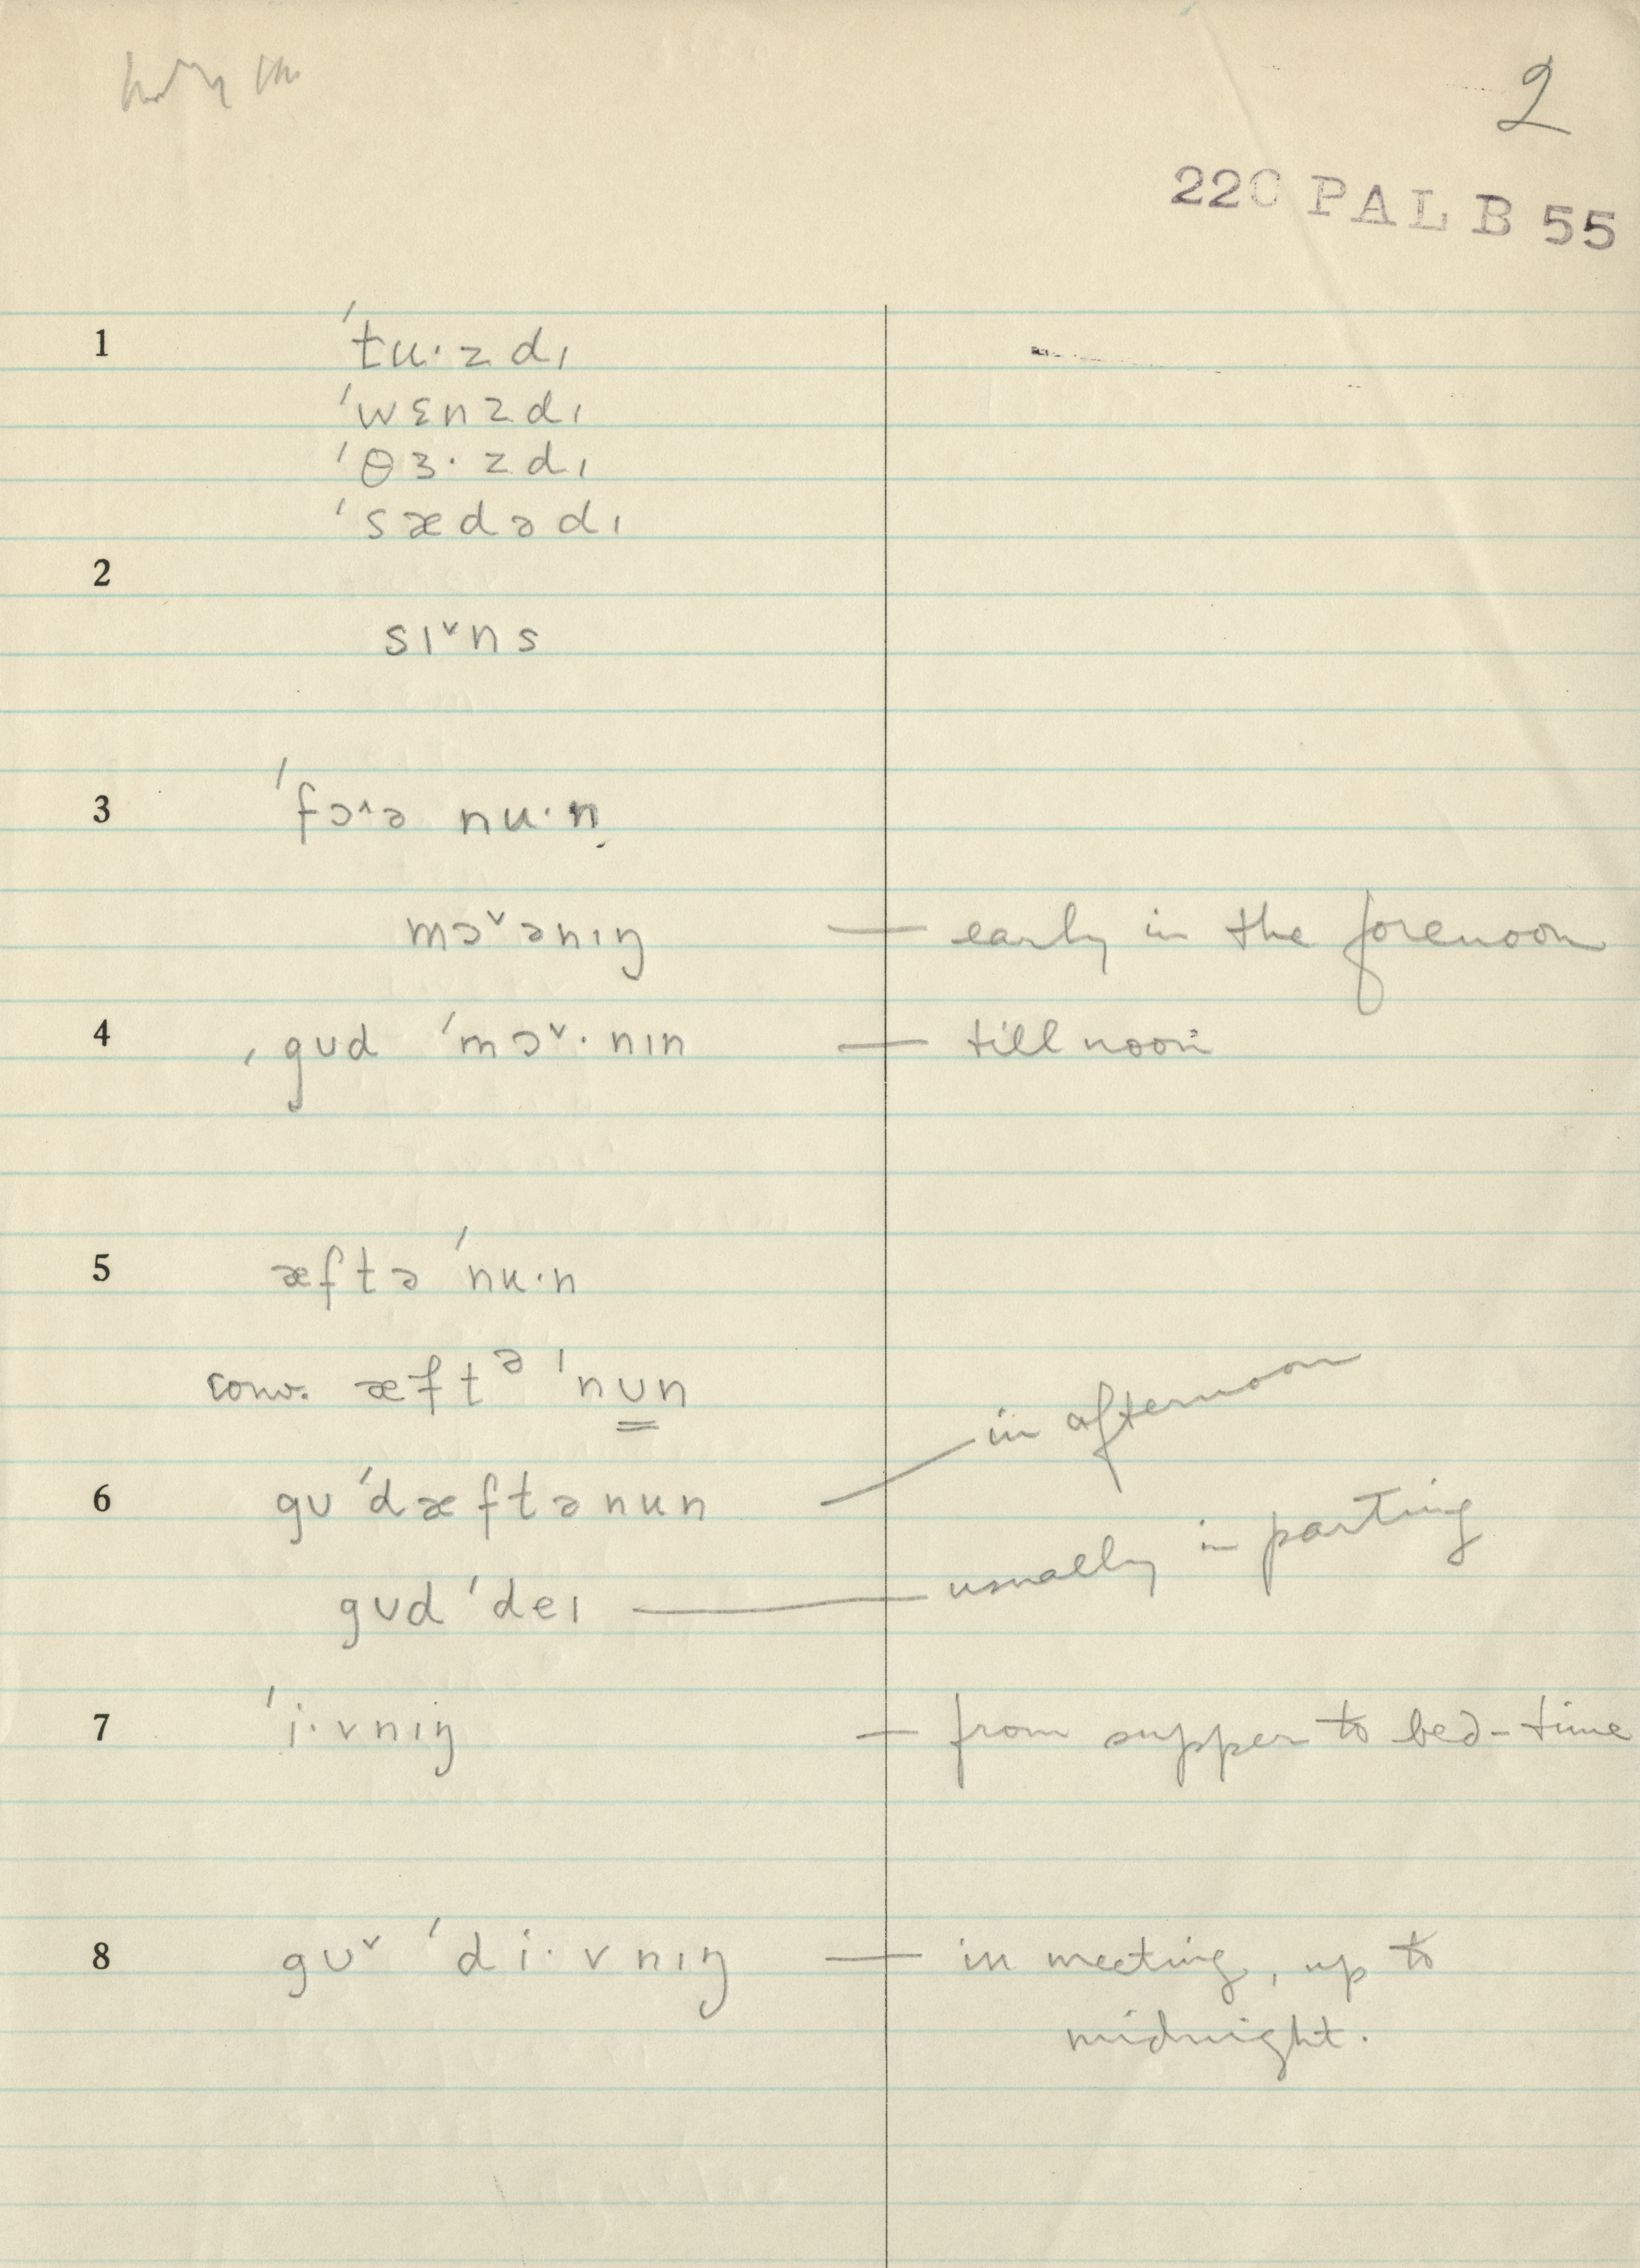 2
220 PAL B 55
1 ˈtu·zdɪ
ˈwɛnzdɪ
ˈθɜ·zdɪ
ˈsædədɪ
2
sɪ˅ns
3 ˈfɔ˄ə nu·n
mɔ˅ənɪŋ — early in the forenoon
4 ˌgʊd ˈmɔ˅·nɪn — till noon
5 æftə ˈnu·n
conv. æftᵊ ˈnʊn
6 gʊˈdæftənun — in afternoon
gʊdˈdeɪ — usually in parting
7 ˈi·vnɪŋ — from supper to bed-time
8 gʊ˅ ˈdi·vnɪŋ — in meeting, up to
midnight.